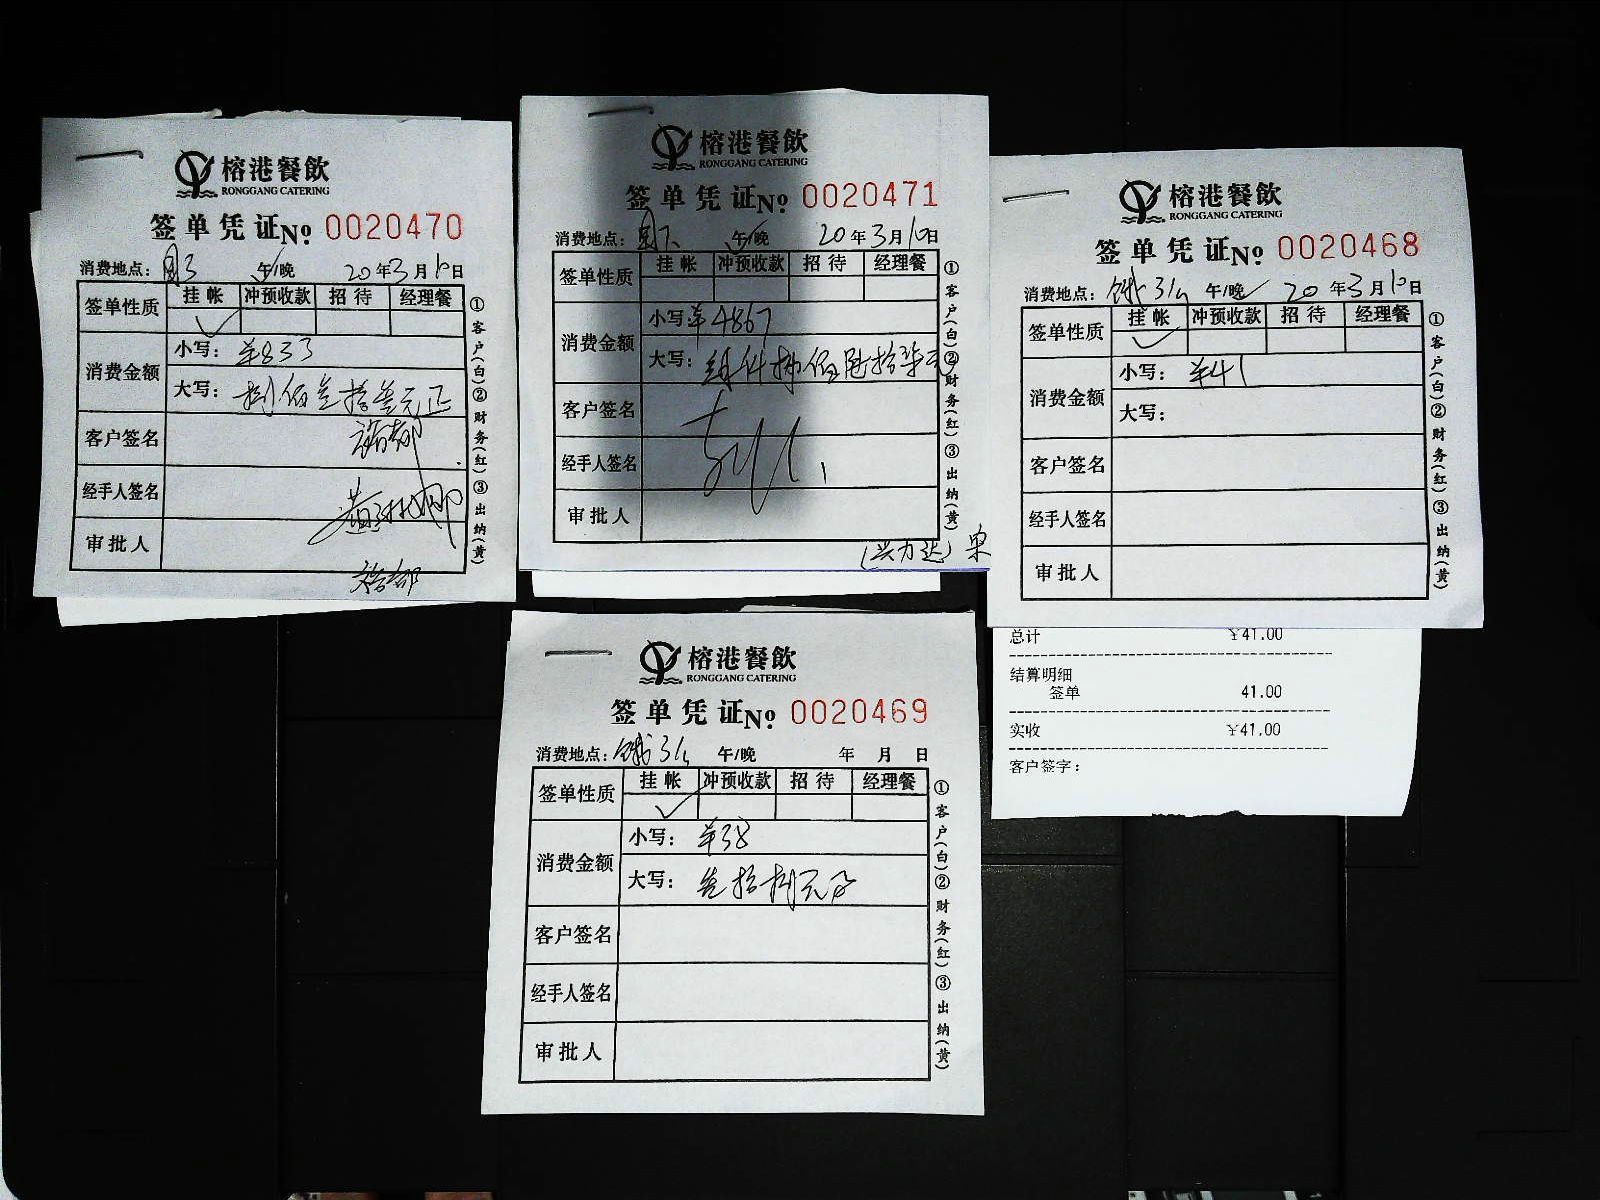 榕港餐飲
RONGGANG CATERING
签单凭证No 0020470
消费地点： 午/晚 20年3月10日
签单性质 挂帐 冲预收款 招待 经理餐
消费金额
小写：¥833
大写：捌佰叁拾叁元正
客户签名
经手人签名
审批人
①客户(白)②财务(红)③出纳(黄)
榕港餐飲
RONGGANG CATERING
签单凭证No 0020471
消费地点： 午/晚 20年3月10日
签单性质 挂帐 冲预收款 招待 经理餐
消费金额
小写¥4867
大写：肆仟捌佰陆拾柒元
客户签名
经手人签名
审批人
(兴力达)
①客户(白)②财务(红)③出纳(黄)
榕港餐飲
RONGGANG CATERING
签单凭证No 0020468
消费地点： 午/晚 20年3月10日
签单性质 挂帐 冲预收款 招待 经理餐
消费金额
小写：¥41
大写：
客户签名
经手人签名
审批人
①客户(白)②财务(红)③出纳(黄)
总计 ¥41.00
结算明细
签单 41.00
实收 ¥41.00
客户签字：
榕港餐飲
RONGGANG CATERING
签单凭证No 0020469
消费地点： 午/晚 年 月 日
签单性质 挂帐 冲预收款 招待 经理餐
消费金额
小写：¥38
大写：叁拾捌元正
客户签名
经手人签名
审批人
①客户(白)②财务(红)③出纳(黄)